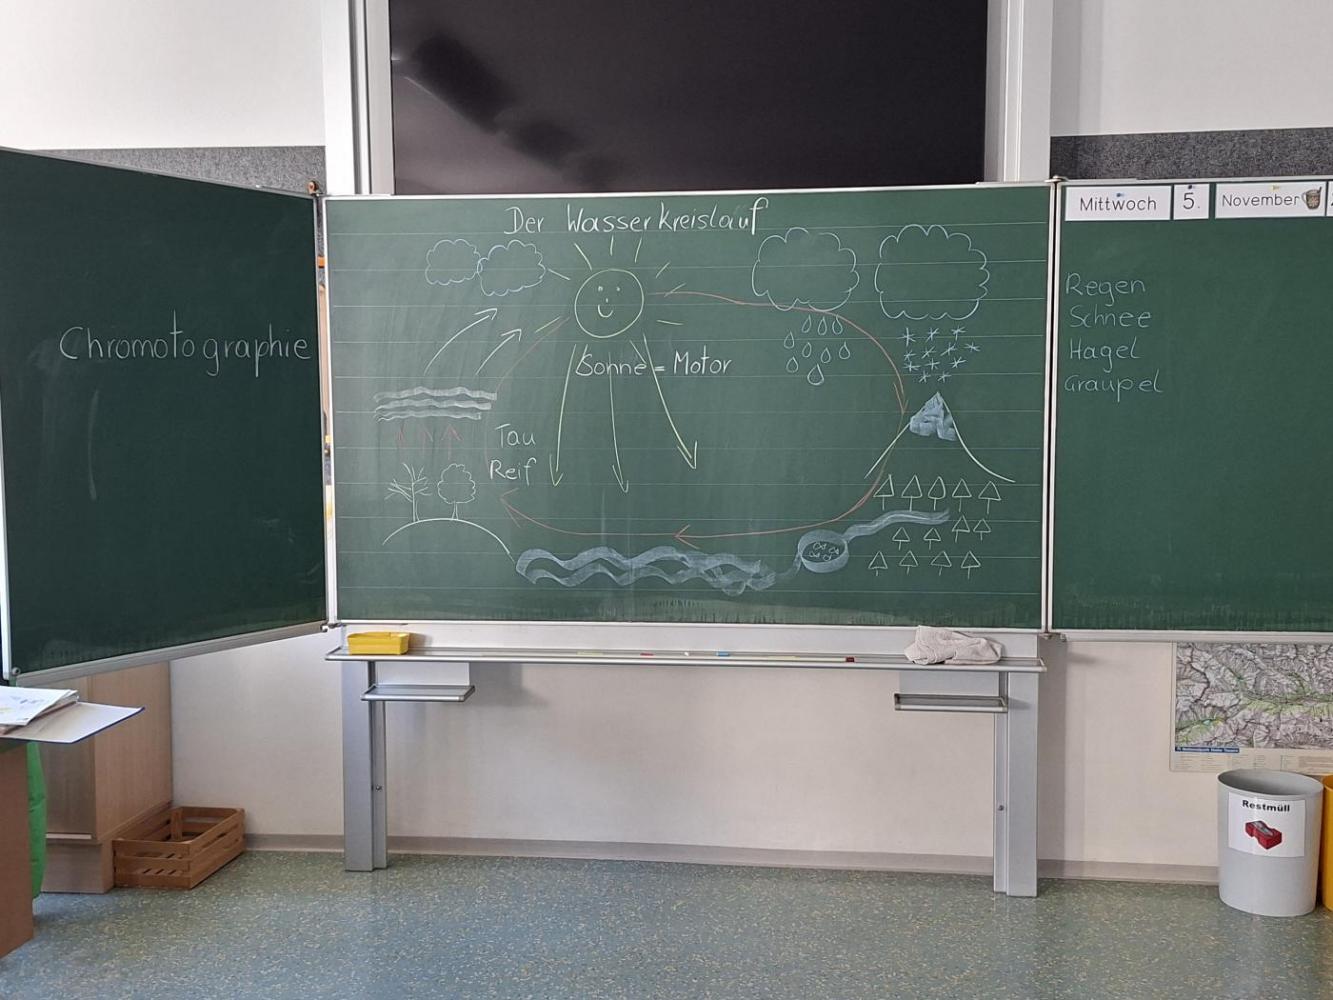 Chromotographie
Der Wasserkreislauf
Sonne = Motor
Tau
Reif
Mittwoch 5. November
Regen
Schnee
Hagel
Graupel
Nationalpark Hohe Tauern
Restmüll